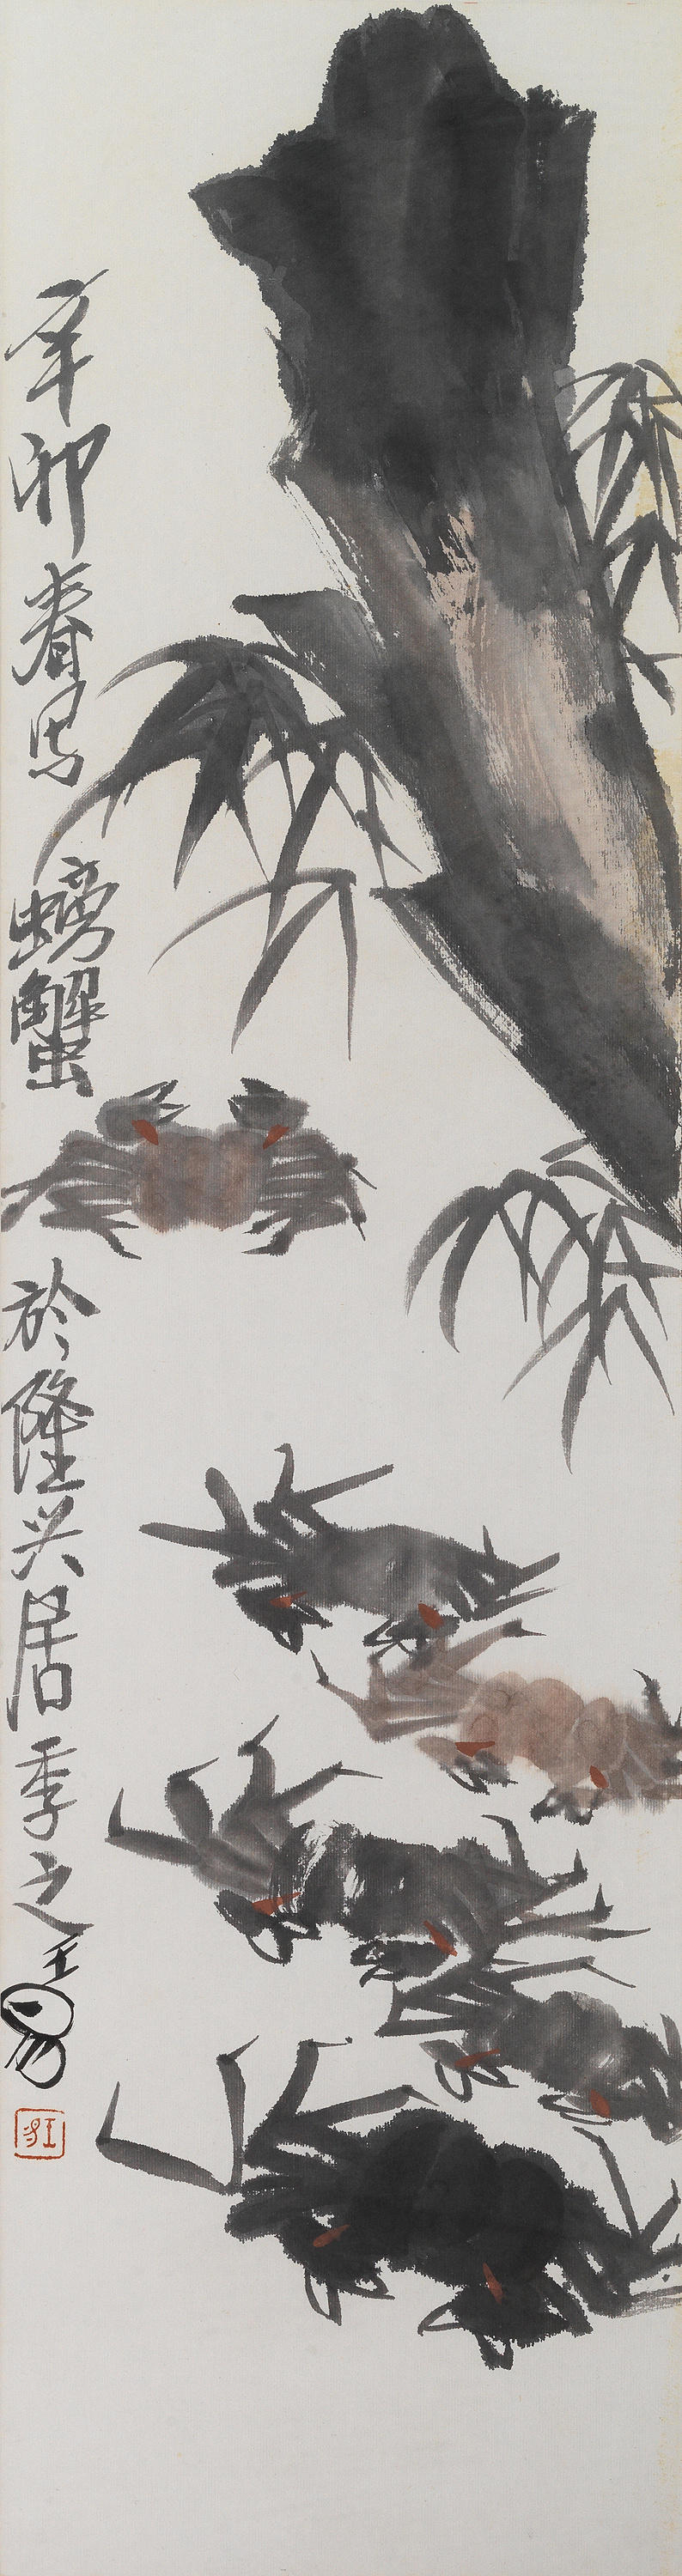 辛卯春写螃蟹於隆兴居季之王易